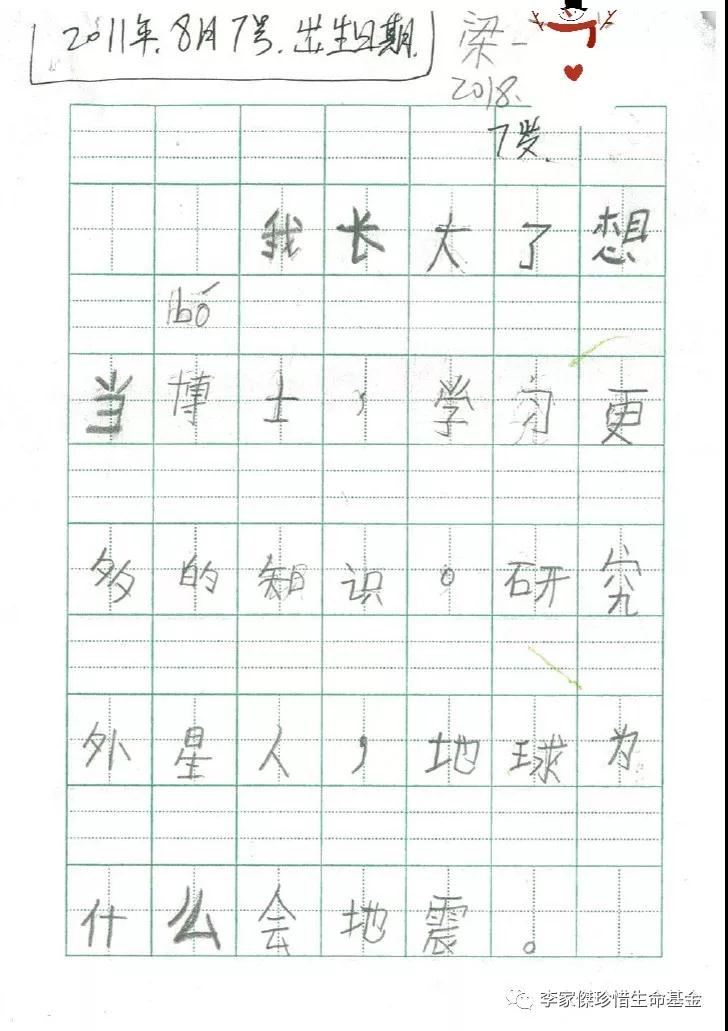 2011年.8月7号.出生日期.
梁一
2018.
7岁.
我长大了想
bó
当博士，学习更
多的知识。研究
外星人，地球为
什么会地震。
李家傑珍惜生命基金